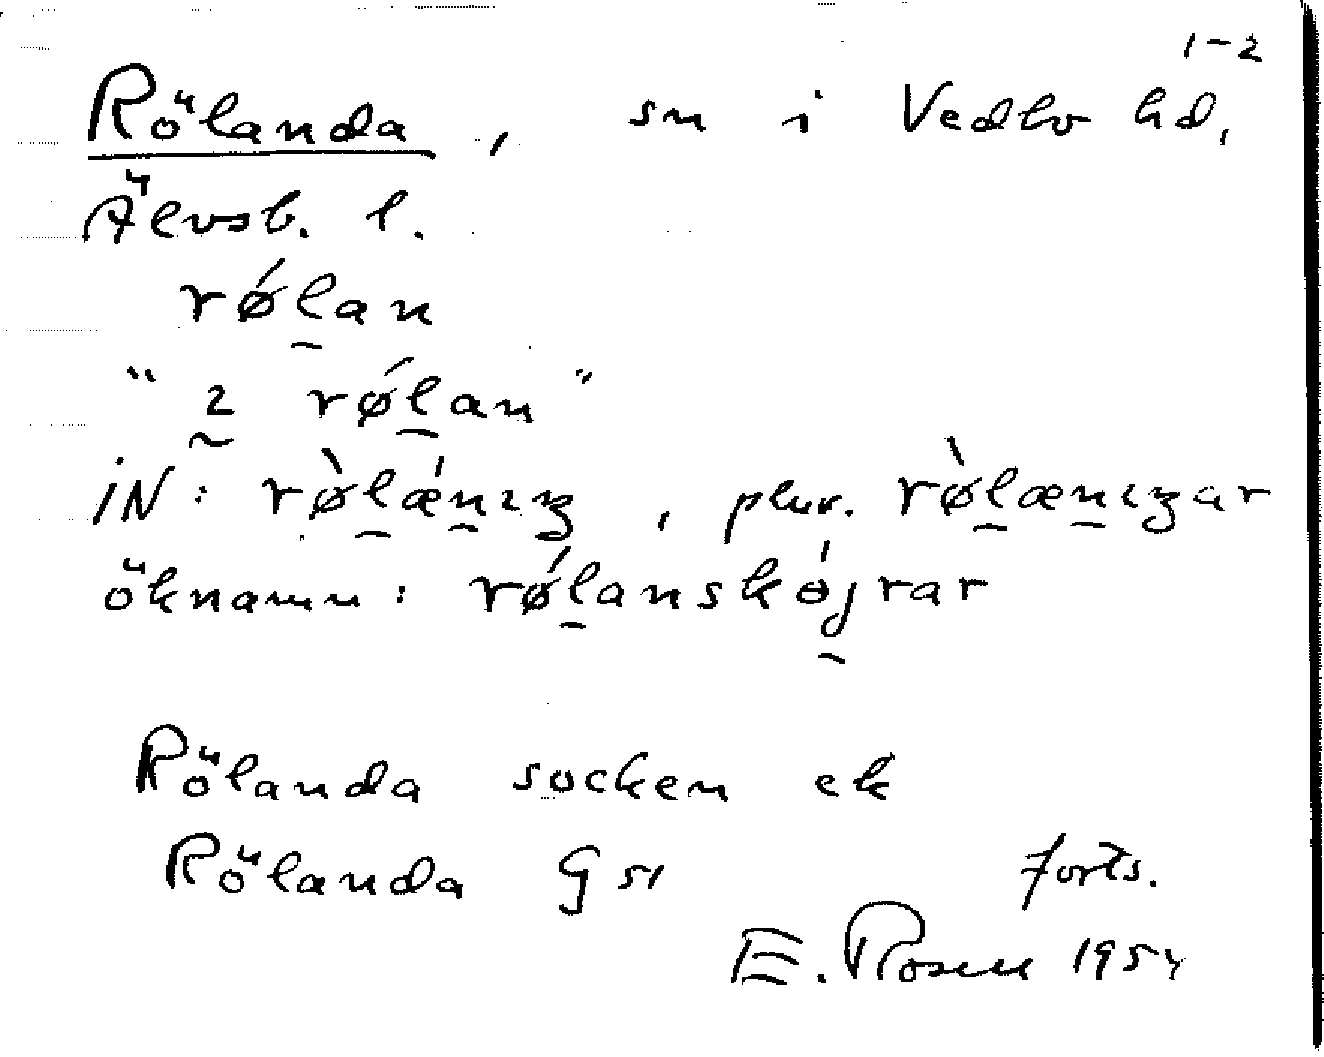 1-2
Rölanda, sn i Vedbo hd,
Älvsb. l.
rǿl̠an
"2 rǿl̠an"
iN: rø̀l̠æ̍n̠ɪŋ, plur. rø̀l̠æn̠ɪŋar
öknamn: rǿl̠anskójrar
Rölanda socken ek
Rölanda Gsv
forts.
E. Rosell 1954